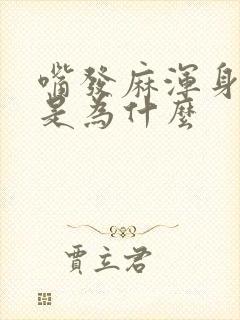 嘴發麻渾身
是為什麼
賈立君